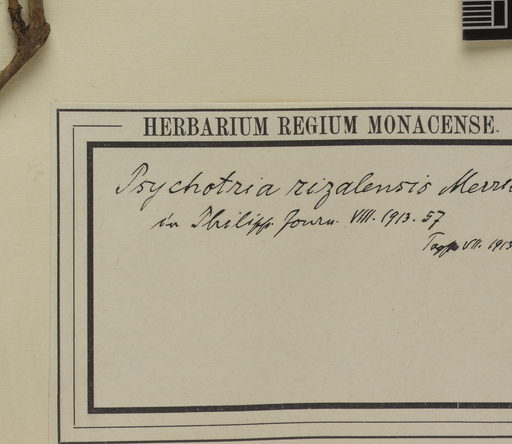 HERBARIUM REGIUM MONACENSE.
Psychotria rizalensis Merri
in Philipp. Journ. VIII. 1913. 57
VII. 1913